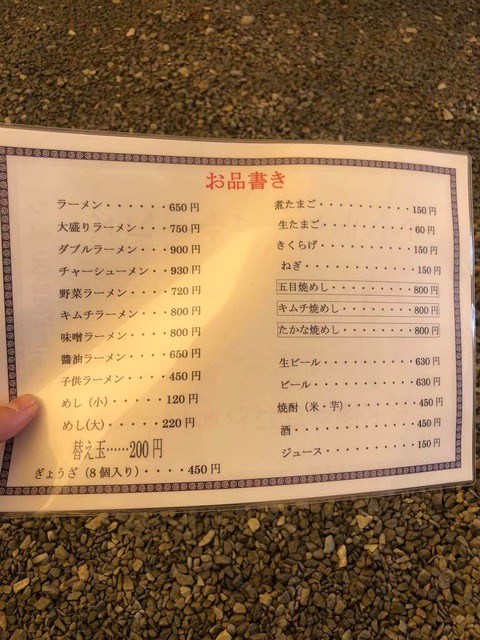 お品書き
ラーメン・・・・・・650円
大盛りラーメン・・・750円
ダブルラーメン・・・900円
チャーシューメン・・930円
野菜ラーメン・・・・720円
キムチラーメン・・・800円
味噌ラーメン・・・・800円
醬油ラーメン・・・・650円
子供ラーメン・・・・450円
めし（小）・・・・・120円
めし(大)・・・・・220円
替え玉……200円
ぎょうざ（8個入り）・・・・450円
煮たまご・・・・・・・・・・150円
生たまご・・・・・・・・・・60円
きくらげ・・・・・・・・・・150円
ねぎ・・・・・・・・・・・・150円
五目焼めし・・・・・・・・・800円
キムチ焼めし・・・・・・・・800円
たかな焼めし・・・・・・・・800円
生ビール・・・・・・・・・・630円
ビール・・・・・・・・・・・630円
焼酎（米・芋）・・・・・・・450円
酒・・・・・・・・・・・・・450円
ジュース・・・・・・・・・・150円